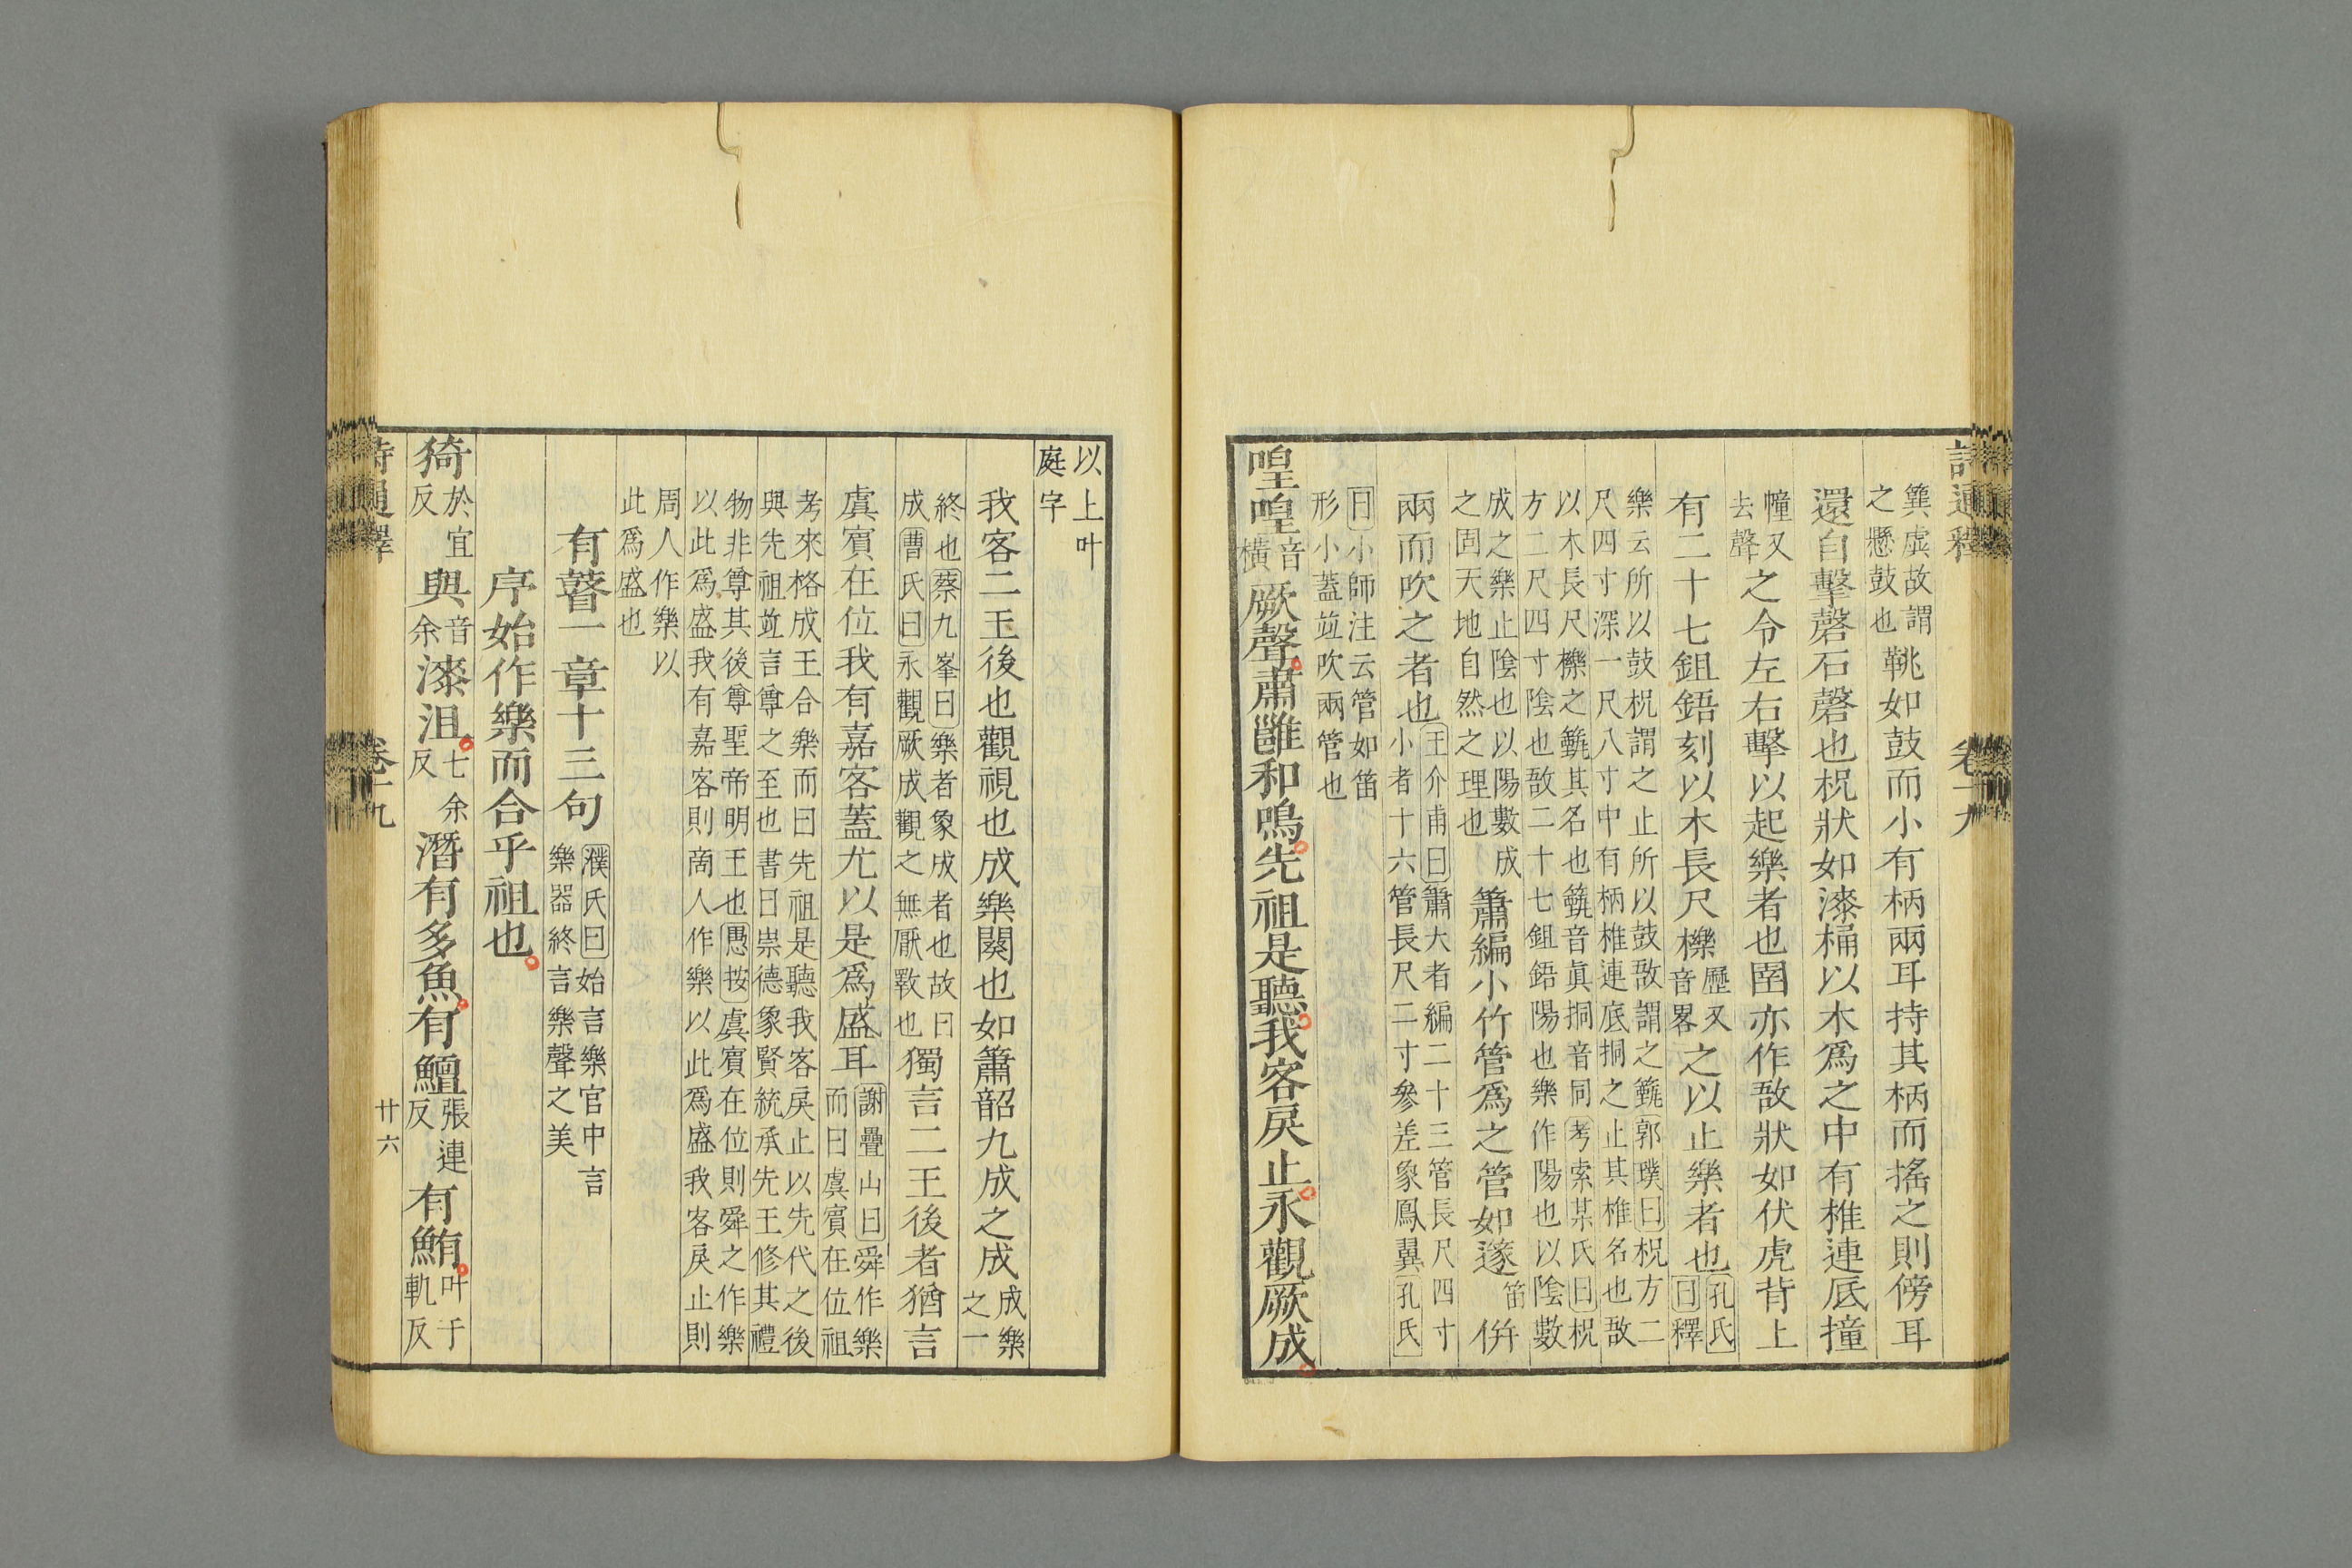 簨虡故謂之懸鼓也鞉如鼓而小有柄兩耳持其柄而搖之則傍耳
還自擊磬石磬也柷狀如漆桶以木爲之中有椎連底撞
幢又去聲之令左右擊以起樂者也圉亦作敔狀如伏虎背上
有二十七鉏鋙刻以木長尺櫟歷又音畧之以止樂者也孔氏曰釋
樂云所以鼓柷謂之止所以鼓敔謂之籈郭璞曰柷方二
尺四寸深一尺八寸中有柄椎連底挏之止其椎名也敔
以木長尺櫟之籈其名也籈音眞挏音同考索某氏曰柷
方二尺四寸陰也敔二十七鉏鋙陽也樂作陽也以陰數
成之樂止陰也以陽數成之固天地自然之理也簫編小竹管爲之管如篴笛倂
兩而吹之者也王介甫曰簫大者編二十三管長尺四寸小者十六管長尺二寸參差象鳳翼孔氏
曰小師注云管如笛形小蓋竝吹兩管也
喤喤音橫厥聲肅雝和鳴先祖是聽我客戾止永觀厥成
詩通釋
卷十九
以上叶庭字
我客二王後也觀視也成樂闋也如簫韶九成之成成樂之一
終也蔡九峯曰樂者象成者也故曰成曹氏曰永觀厥成觀之無厭斁也獨言二王後者猶言
虞賓在位我有嘉客蓋尤以是爲盛耳謝疊山曰舜作樂而曰虞賓在位祖
考來格成王合樂而曰先祖是聽我客戾止以先代之後
與先祖竝言尊之至也書曰崇德象賢統承先王修其禮
物非尊其後尊聖帝明王也愚按虞賓在位則舜之作樂
以此爲盛我有嘉客則商人作樂以此爲盛我客戾止則
周人作樂以此爲盛也
有瞽一章十三句濮氏曰始言樂官中言樂器終言樂聲之美
序始作樂而合乎祖也
猗於宜反與音余漆沮七余反潛有多魚有鱣張連反有鮪叶于軌反
詩通釋
卷十九
廿六